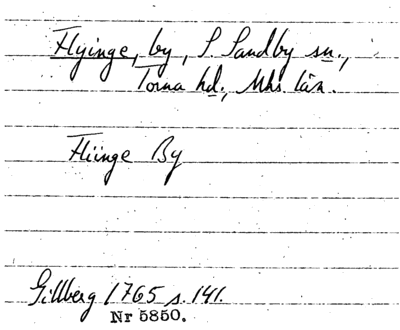 Flyinge, by, S. Sandby sn.,
Torna hd., Mhs. län.
Fliinge By
Gillberg 1765 s. 141.
Nr 5850.